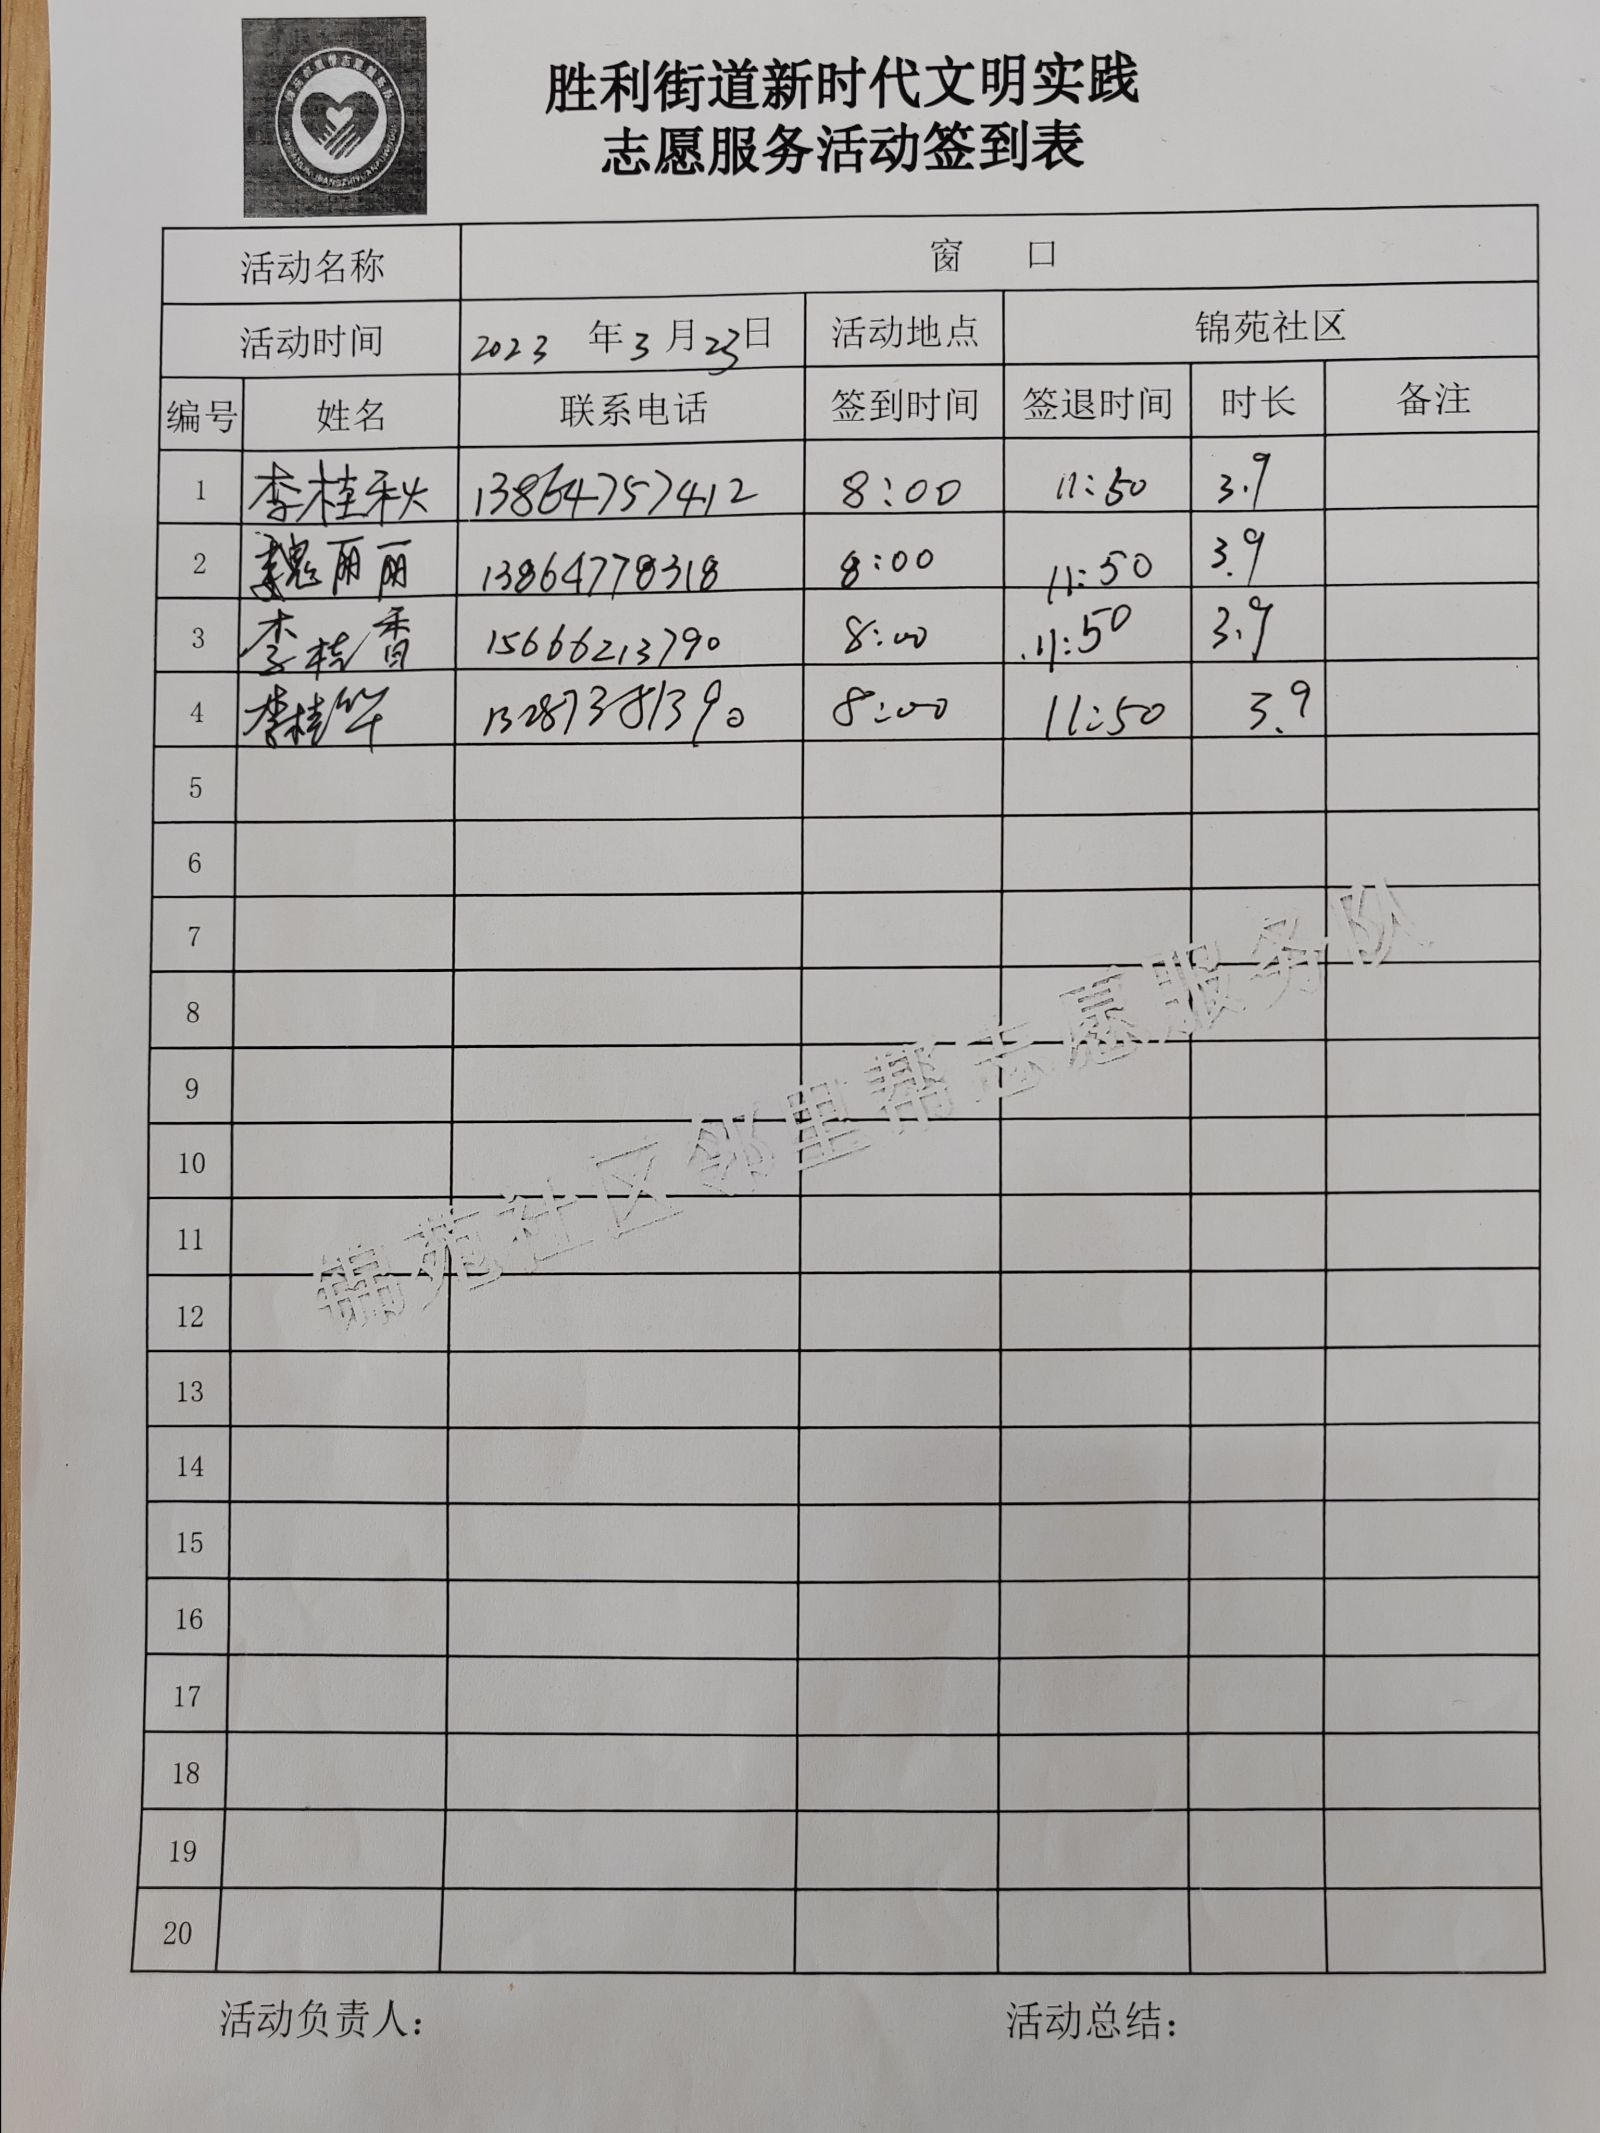 胜利街道新时代文明实践
志愿服务活动签到表
活动名称 窗 口
活动时间 2023 年3月23日 活动地点 锦苑社区
编号 姓名 联系电话 签到时间 签退时间 时长 备注
1 李桂秋 13864757412 8:00 11:50 3.9
2 魏丽丽 13864778318 8:00 11:50 3.9
3 李桂香 15666213790 8:00 11:50 3.9
4 李桂华 13287381390 8:00 11:50 3.9
5
6
7
8
9
10
11
12
13
14
15
16
17
18
19
20
锦苑社区邻里帮志愿服务队
活动负责人： 活动总结：